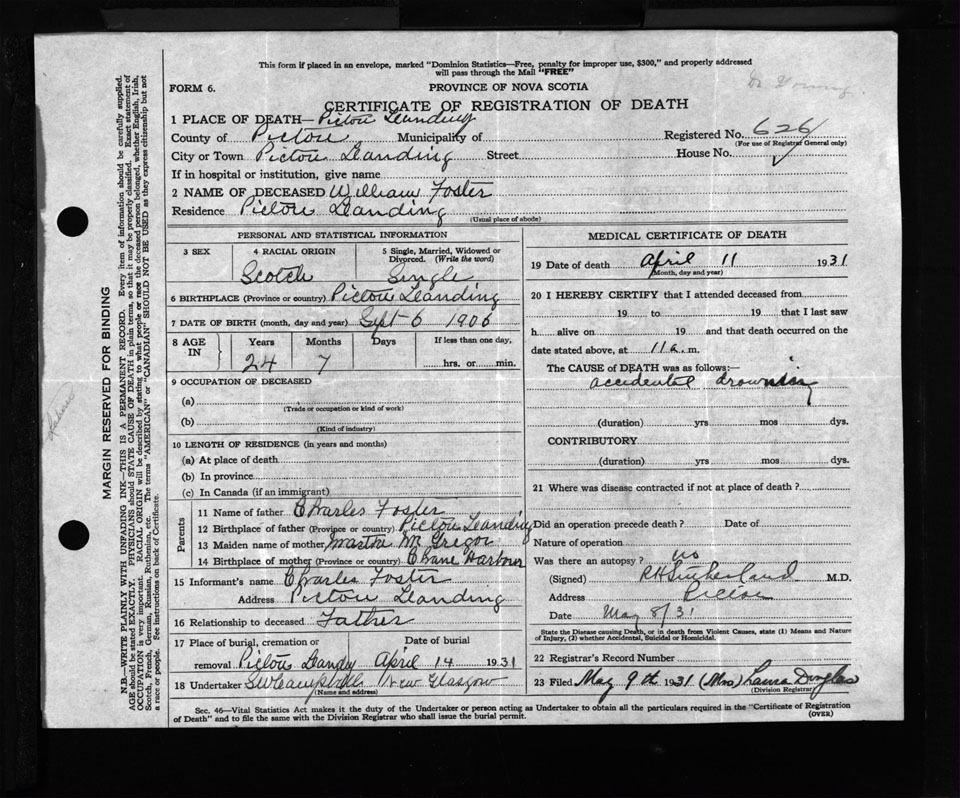 This form if placed in an envelope, marked "Dominion Statistics—Free, penalty for improper use, $300," and properly addressed
will pass through the Mail "FREE"
FORM 6.
PROVINCE OF NOVA SCOTIA
CERTIFICATE OF REGISTRATION OF DEATH
1 PLACE OF DEATH— Pictou Landing
County of Pictou Municipality of Registered No. 626
(For use of Registrar General only)
City or Town Pictou Landing Street House No.
If in hospital or institution, give name
2 NAME OF DECEASED William Foster
Residence Pictou Landing
(Usual place of abode)
PERSONAL AND STATISTICAL INFORMATION
3 SEX 4 RACIAL ORIGIN 5 Single, Married, Widowed or
Divorced. (Write the word)
Scotch Single
6 BIRTHPLACE (Province or country) Pictou Landing
7 DATE OF BIRTH (month, day and year) Sept 6 1906
8 AGE IN Years Months Days If less than one day,
24 7 hrs. or min.
9 OCCUPATION OF DECEASED
(a)
(Trade or occupation or kind of work)
(b)
(Kind of industry)
10 LENGTH OF RESIDENCE (in years and months)
(a) At place of death
(b) In province
(c) In Canada (if an immigrant)
Parents
11 Name of father Charles Foster
12 Birthplace of father (Province or country) Pictou Landing
13 Maiden name of mother Martha McGregor
14 Birthplace of mother (Province or country) Harbour
15 Informant's name Charles Foster
Address Pictou Landing
16 Relationship to deceased Father
17 Place of burial, cremation or Date of burial
removal Pictou Landing April 14 1931
18 Undertaker New Glasgow
(Name and address)
MEDICAL CERTIFICATE OF DEATH
19 Date of death April 11 1931
(Month, day and year)
20 I HEREBY CERTIFY that I attended deceased from
19 to 19 that I last saw
h alive on 19 and that death occurred on the
date stated above, at 11 a. m.
The CAUSE of DEATH was as follows:—
accidental drowning
(duration) yrs mos dys.
CONTRIBUTORY
(duration) yrs mos dys.
21 Where was disease contracted if not at place of death?
Did an operation precede death? Date of
Nature of operation
Was there an autopsy? no
(Signed) R H Sutherland M.D.
Address
Date May 8/31
State the Disease causing Death, or in death from Violent Causes, state (1) Means and Nature
of Injury, (2) whether Accidental, Suicidal or Homicidal.
22 Registrar's Record Number
23 Filed May 9th 1931 (Mrs) Laura Douglas
(Division Registrar)
Sec. 46—Vital Statistics Act makes it the duty of the Undertaker or person acting as Undertaker to obtain all the particulars required in the "Certificate of Registration
of Death" and to file the same with the Division Registrar who shall issue the burial permit.
(OVER)
MARGIN RESERVED FOR BINDING
N.B.—WRITE PLAINLY WITH UNFADING INK—THIS IS A PERMANENT RECORD. Every item of information should be carefully supplied.
AGE should be stated EXACTLY. PHYSICIANS should STATE CAUSE OF DEATH in plain terms, so that it may be properly classified. Exact statement of
OCCUPATION is very important. RACIAL ORIGIN will be described by stating to what people or race the deceased person belonged, whether English, Irish,
Scotch, French, German, Russian, Ruthenian, etc. The terms "AMERICAN" or "CANADIAN" SHOULD NOT BE USED as they express citizenship but not
a race or people. See instructions on back of Certificate.